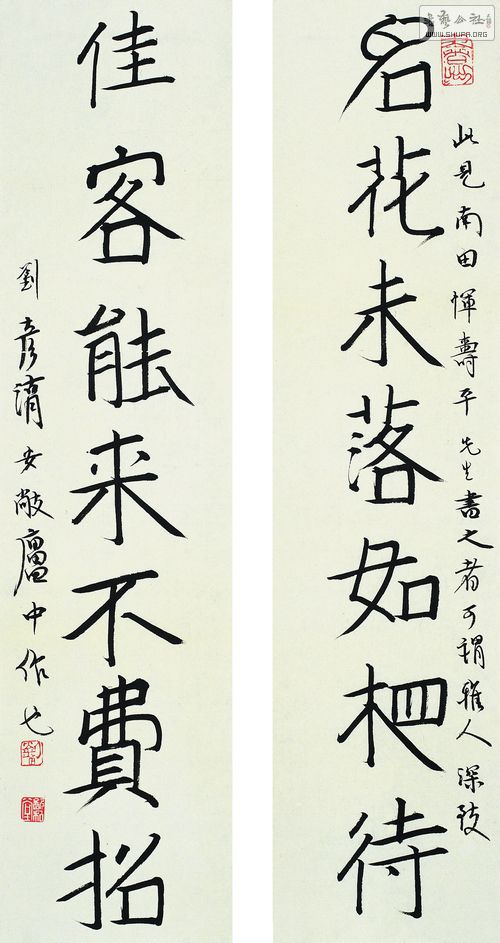 書藝公社
WWW.SHUFA.ORG
名花未落如相待
此見南田惲壽平先生書之者可謂雅人深致
佳客能来不費招
劉彦湖 廬中作也